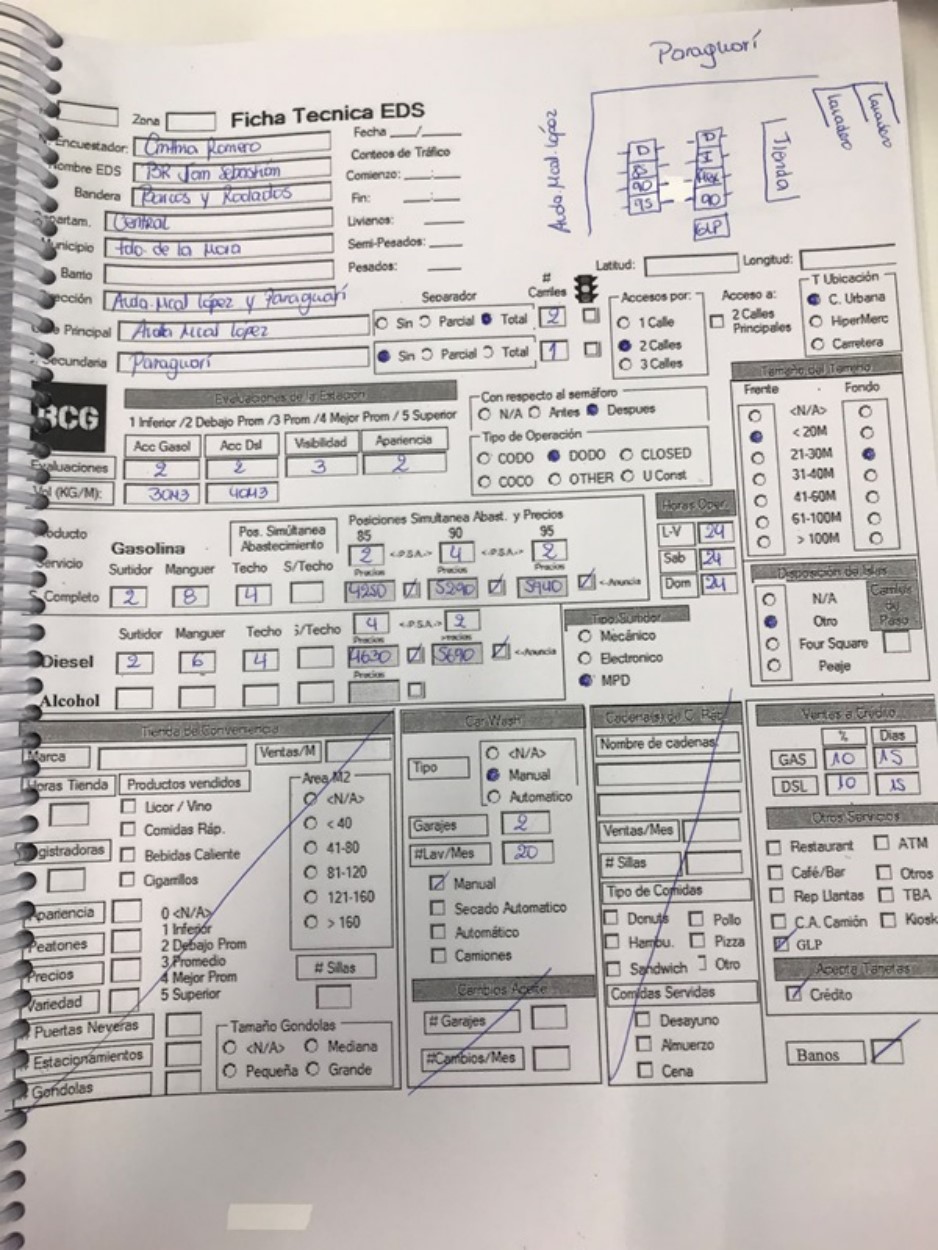 Paraguarí
Zona
Ficha Tecnica EDS
Avda. Mcal. López
Lavadero
Lavadero
Tienda
D
90
95
D
90
GLP
Encuestador: Romero
Fecha / 
Nombre EDS BR San Sebastián
Conteos de Tráfico
Bandera Barcos y Rodados
Comienzo: :
Fin: :
Departam. Central
Livianos:
Municipio Fdo. de la Mora
Semi-Pesados:
Barrio
Pesados:
Latitud: Longitud:
ección Avda. Mcal López y Paraguarí
Separador
# Carriles
Calle Principal Avda Mcal López
Sin Parcial Total 2
Secundaria Paraguarí
Sin Parcial Total 1
Accesos por:
1 Calle
2 Calles
3 Calles
Acceso a:
2 Calles Principales
T Ubicación
C. Urbana
HiperMerc
Carretera
BCG
Evaluaciones de la Estacion
1 Inferior /2 Debajo Prom /3 Prom /4 Mejor Prom / 5 Superior
Acc Gasol Acc Dsl Visibilidad Apariencia
Evaluaciones 2 2 3 2
Vol (KG/M): 30M3 40M3
Con respecto al semáforo
N/A Antes Despues
Tipo de Operación
CODO DODO CLOSED
COCO OTHER U Const
Tamaño del Terreno
Frente Fondo
<N/A>
< 20M
21-30M
31-40M
41-60M
61-100M
> 100M
Producto
Servicio
Gasolina
Pos. Simúltanea Abastecimiento
Posiciones Simultanea Abast. y Precios
85 90 95
2 <-P.S.A.-> 4 <-P.S.A.-> 2
Surtidor Manguer Techo S/Techo
Precios Precios Precios
S. Completo 2 8 4 4250 5290 5940 <-Anuncia
Horas Oper.
L-V 24
Sab 24
Dom 24
Surtidor Manguer Techo S/Techo
4 <-P.S.A.-> 2
Precios Precios
Diesel 2 6 4 4630 5690 <-Anuncia
Precios
Alcohol
Tipo Surtidor
Mecánico
Electronico
MPD
Disposición de Islas
N/A
Otro
Four Square
Peaje
Carriles de Paso
Tienda de Conveniencia
Marca Ventas/M
Horas Tienda Productos vendidos
Licor / Vino
Comidas Ráp.
Registradoras
Bebidas Caliente
Cigarrillos
Area M2
<N/A>
< 40
41-80
81-120
121-160
> 160
Apariencia
Peatones
Precios
Variedad
0 <N/A>
1 Inferior
2 Debajo Prom
3 Promedio
4 Mejor Prom
5 Superior
# Sillas
# Puertas Neveras
# Estacionamientos
# Gondolas
Tamaño Gondolas
<N/A> Mediana
Pequeña Grande
Car Wash
Tipo
<N/A>
Manual
Automatico
Garajes 2
#Lav/Mes 20
Manual
Secado Automatico
Automático
Camiones
Cambios Aceite
# Garajes
#Cambios/Mes
Cadena(s) de C. Ráp.
Nombre de cadenas
Ventas/Mes
# Sillas
Tipo de Comidas
Donuts Pollo
Hambu. Pizza
Sandwich Otro
Comidas Servidas
Desayuno
Almuerzo
Cena
Ventas a Crédito
% Dias
GAS 10 15
DSL 10 15
Otros Servicios
Restaurant ATM
Café/Bar Otros
Rep Llantas TBA
C.A. Camión Kiosk
GLP
Acepta Tarjetas
Crédito
Banos